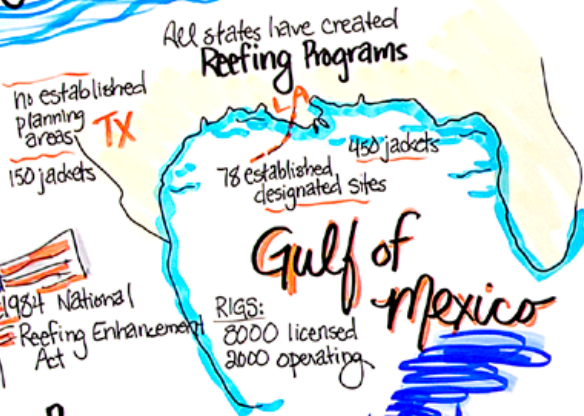 All states have created
Reefing Programs
no established
planning
areas
TX
150 jackets
LA
450 jackets
78 established
designated sites
Gulf of
Mexico
1984 National
Reefing Enhancement
Act
RIGS:
8000 licensed
2000 operating